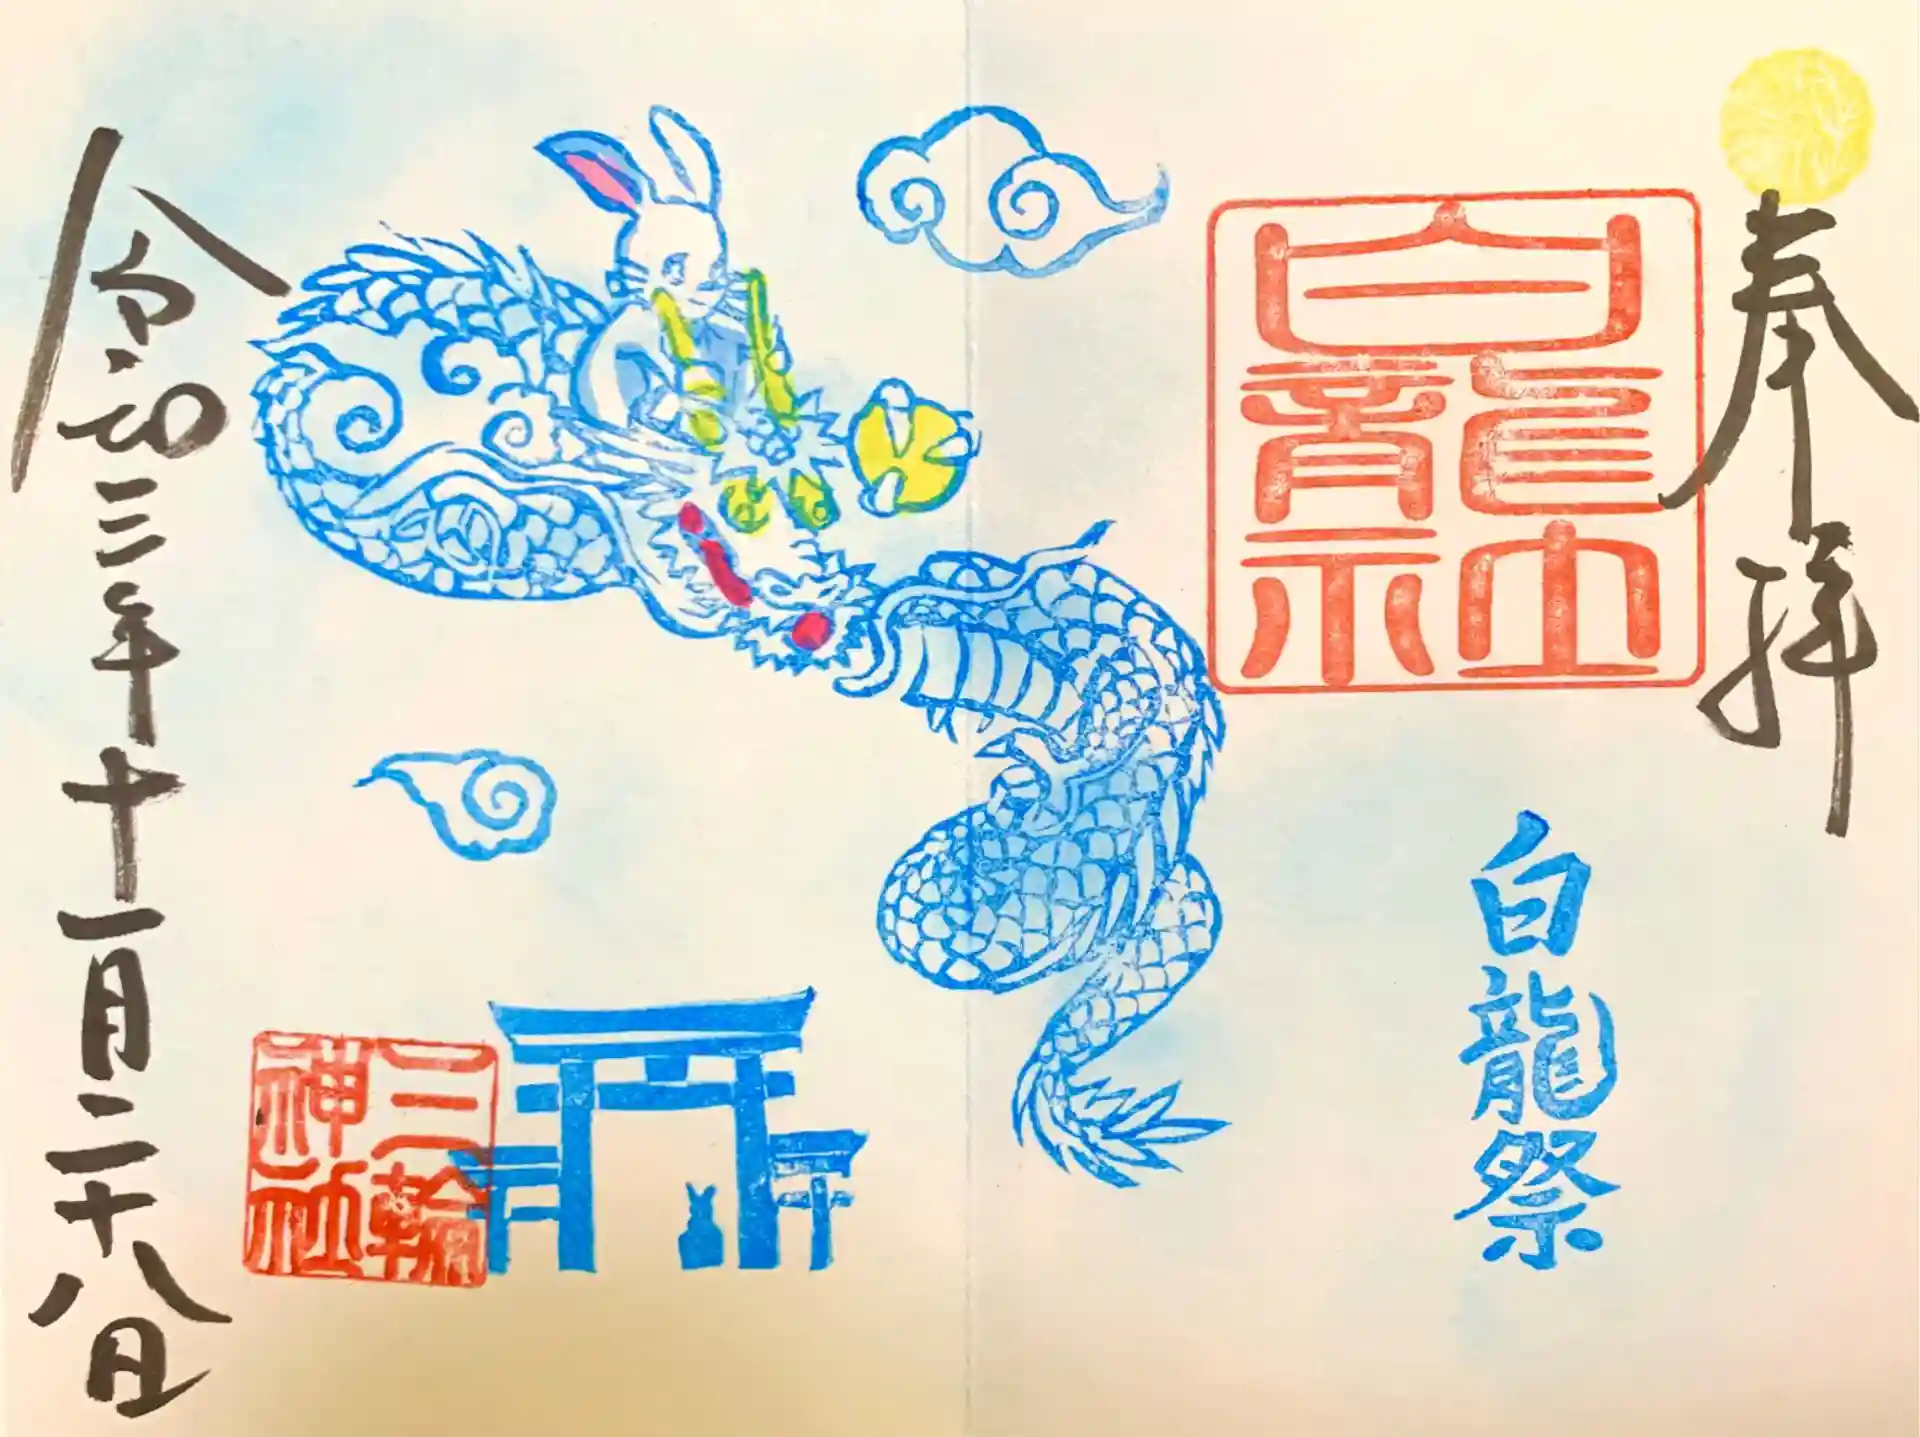 奉拝
白龍社
白龍祭
三輪神社
令和三年十一月二十八日